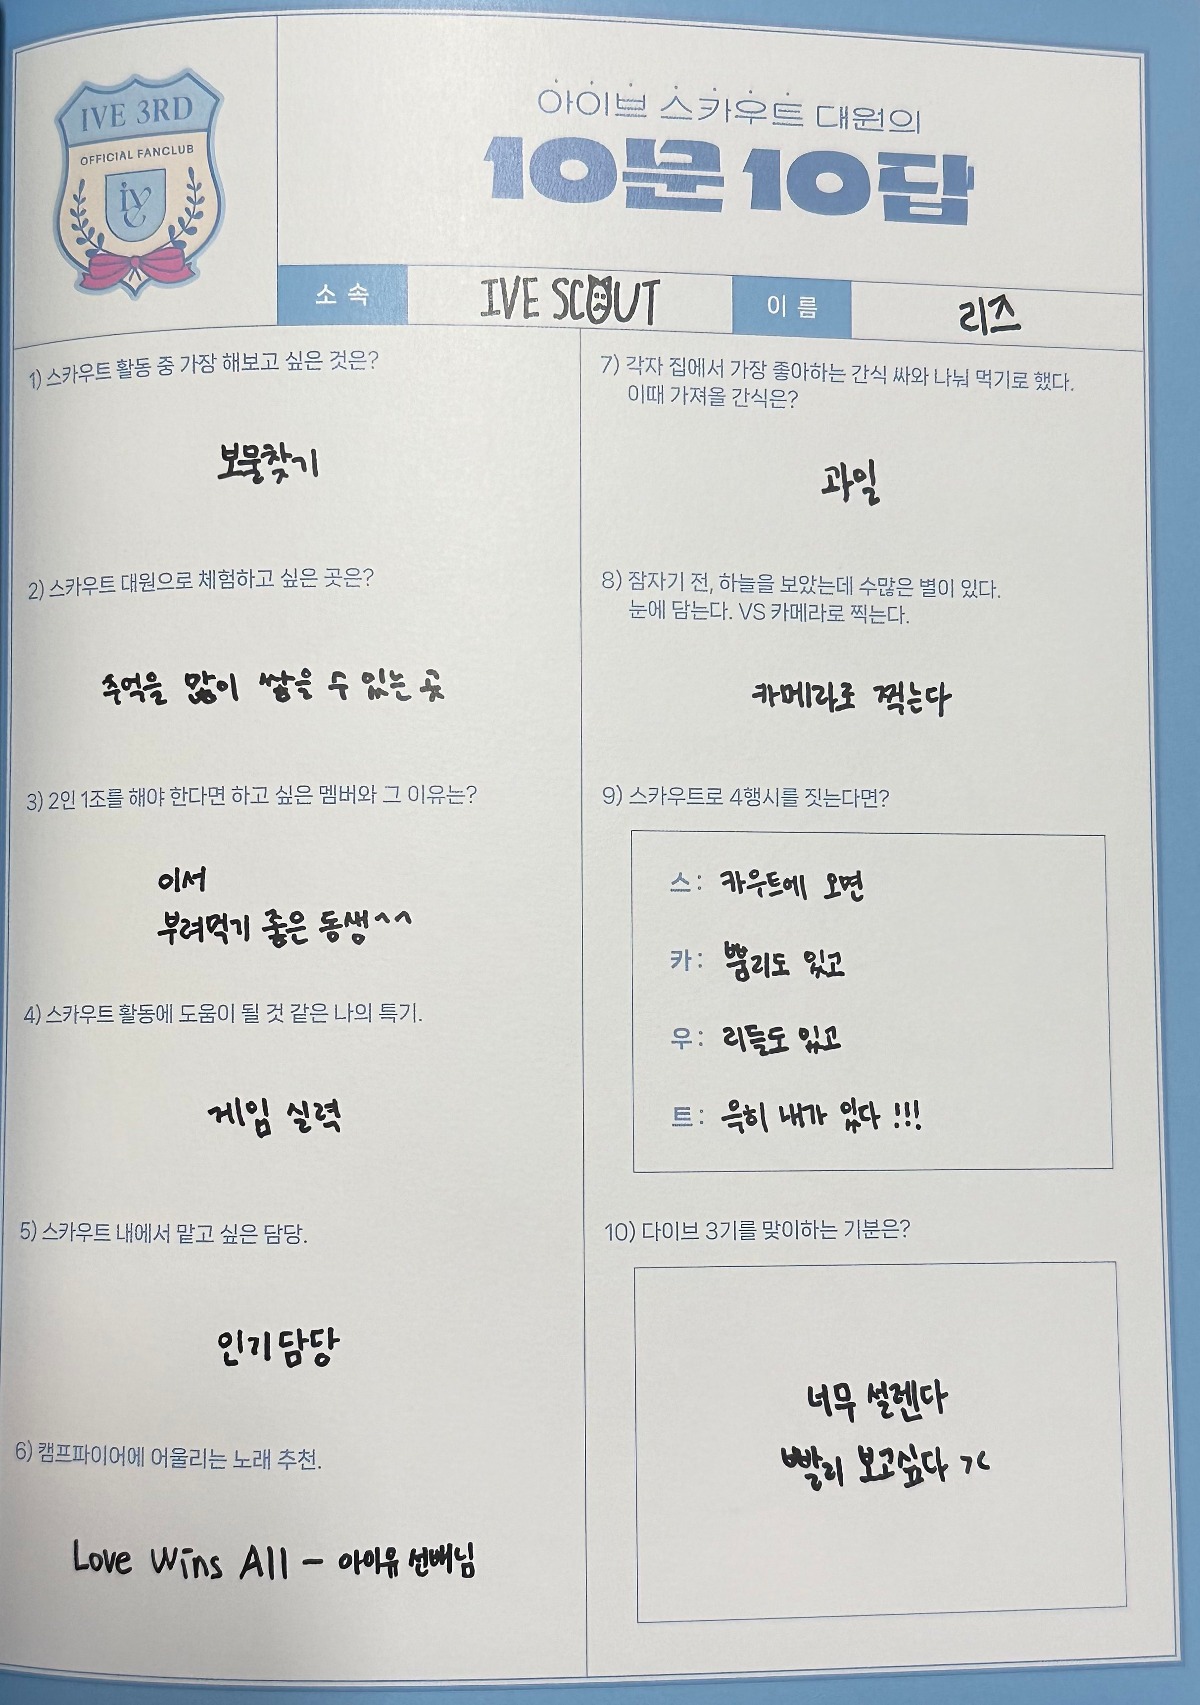 IVE 3RD
OFFICIAL FANCLUB
IVE
아이브 스카우트 대원의
10문 10답
소속
IVE SCOUT
이름
리즈
1) 스카우트 활동 중 가장 해보고 싶은 것은?
보물찾기
2) 스카우트 대원으로 체험하고 싶은 곳은?
추억을 많이 쌓을 수 있는 곳
3) 2인 1조를 해야 한다면 하고 싶은 멤버와 그 이유는?
이서
부려먹기 좋은 동생^^
4) 스카우트 활동에 도움이 될 것 같은 나의 특기.
게임 실력
5) 스카우트 내에서 맡고 싶은 담당.
인기담당
6) 캠프파이어에 어울리는 노래 추천.
Love Wins All - 아이유 선배님
7) 각자 집에서 가장 좋아하는 간식 싸와 나눠 먹기로 했다.
이때 가져올 간식은?
과일
8) 잠자기 전, 하늘을 보았는데 수많은 별이 있다.
눈에 담는다. VS 카메라로 찍는다.
카메라로 찍는다
9) 스카우트로 4행시를 짓는다면?
스: 카우트에 오면
카: 뿡리도 있고
우: 리들도 있고
트: 윽히 내가 있다!!!
10) 다이브 3기를 맞이하는 기분은?
너무 설렌다
빨리 보고싶다 ><